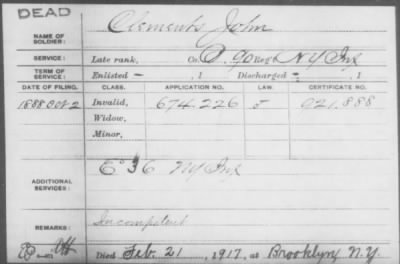 DEAD
NAME OF SOLDIER: Clements John
SERVICE: Late rank, Co. D. 90 Reg't NY Inf
TERM OF SERVICE: Enlisted – , 1 Discharged – , 1
DATE OF FILING. CLASS. APPLICATION NO. LAW. CERTIFICATE NO.
1888 Oct 2 Invalid, 674.226 921.888
Widow,
Minor,
ADDITIONAL SERVICES: E 36 NY Inf
REMARKS: Incompetent
Died Feb. 21, 1917, at Brooklyn N.Y.